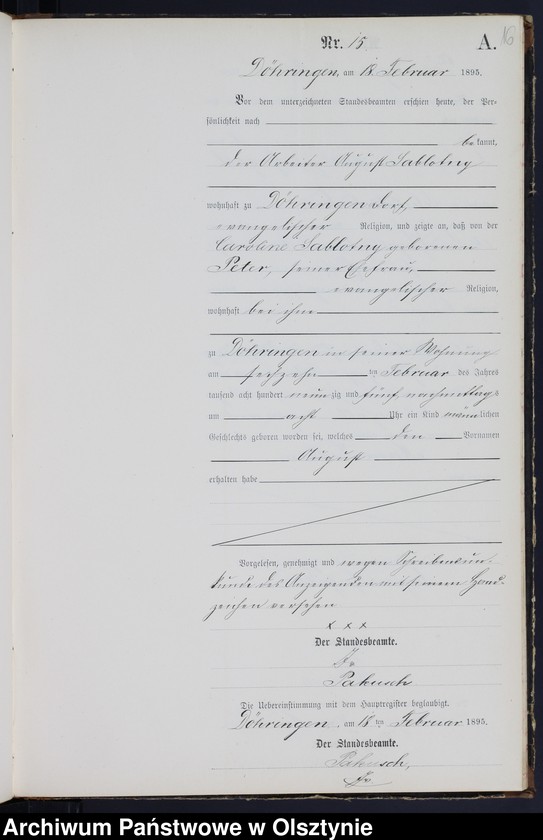 16
Nr. 15
A.
Döhringen, am 18. Februar 1895.
Vor dem unterzeichneten Standesbeamten erschien heute, der Per-
sönlichkeit nach
bekannt,
der Arbeiter August Sablotny
wohnhaft zu Döhringen Dorf,
evangelischer Religion, und zeigte an, daß von der
Caroline Sablotny geborenen
Peter, seiner Ehefrau,
evangelischer Religion,
wohnhaft bei ihm
zu Döhringen in seiner Wohnung
am sechszehn ten Februar des Jahres
tausend acht hundert neunzig und fünf, nachmittags
um acht Uhr ein Kind männlichen
Geschlechts geboren worden sei, welches den Vornamen
August
erhalten habe
Vorgelesen, genehmigt und wegen Schreibensun-
kunde des Anzeigenden mit seinem Hand-
zeichen versehen
x x x
Der Standesbeamte.
Pakusch
Die Uebereinstimmung mit dem Hauptregister beglaubigt.
Döhringen, am 18 ten Februar 1895.
Der Standesbeamte.
Pakusch,
Archiwum Państwowe w Olsztynie